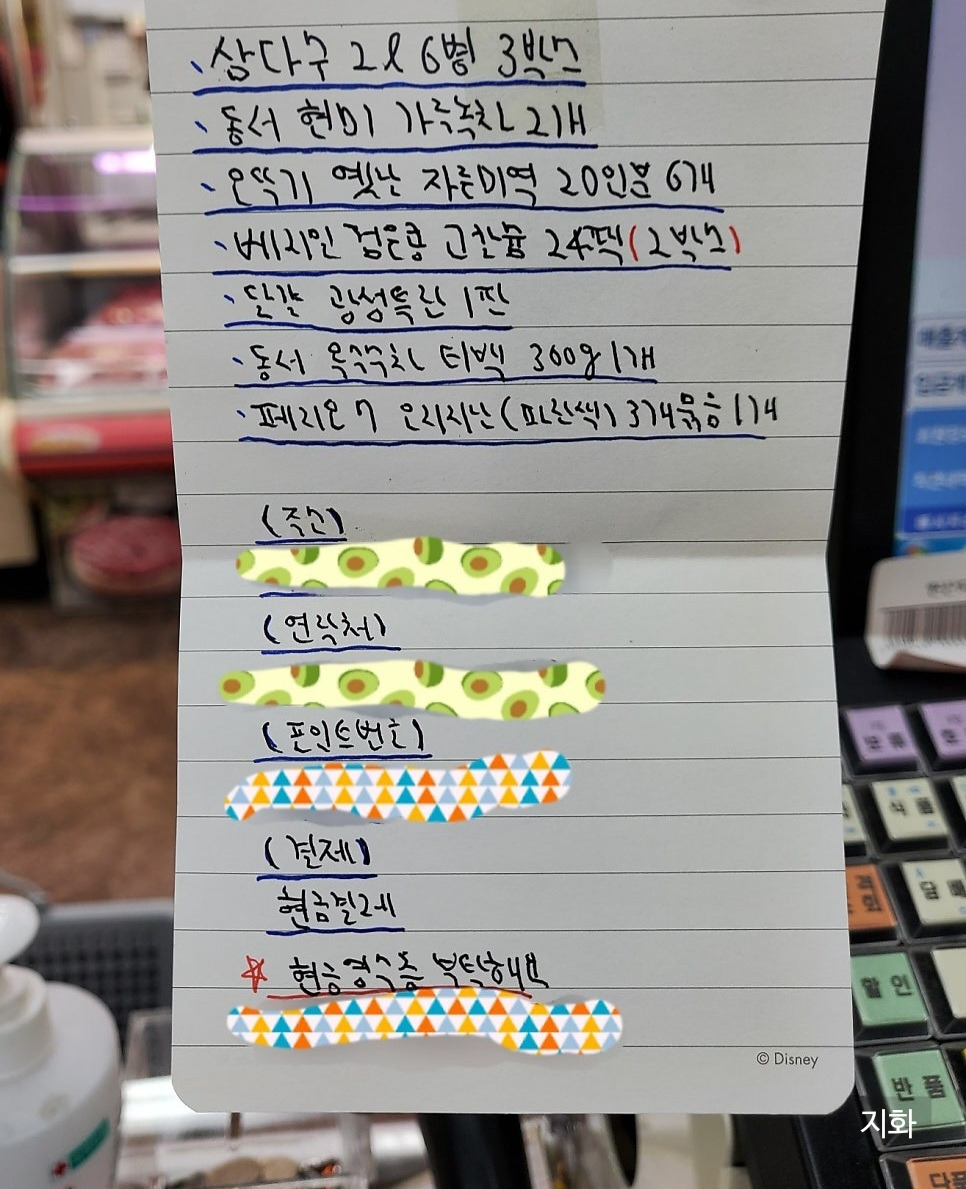 삼다수 2l 6병 3박스
동서 현미 가루녹차 2개
오뚜기 옛날 자른미역 20인분 6개
베지밀 검은콩 고칼슘 24팩(2박스)
달걀 광성특란 1판
동서 옥수수차 티백 300g 1개
페리오 7 오리지날(파란색) 3개묶음 1개
(주소)
(연락처)
(포인트번호)
(결제)
현금결제
☆ 현금영수증 부탁해요
© Disney
매출
입금
분류
식품
담배
할인
반품
지화